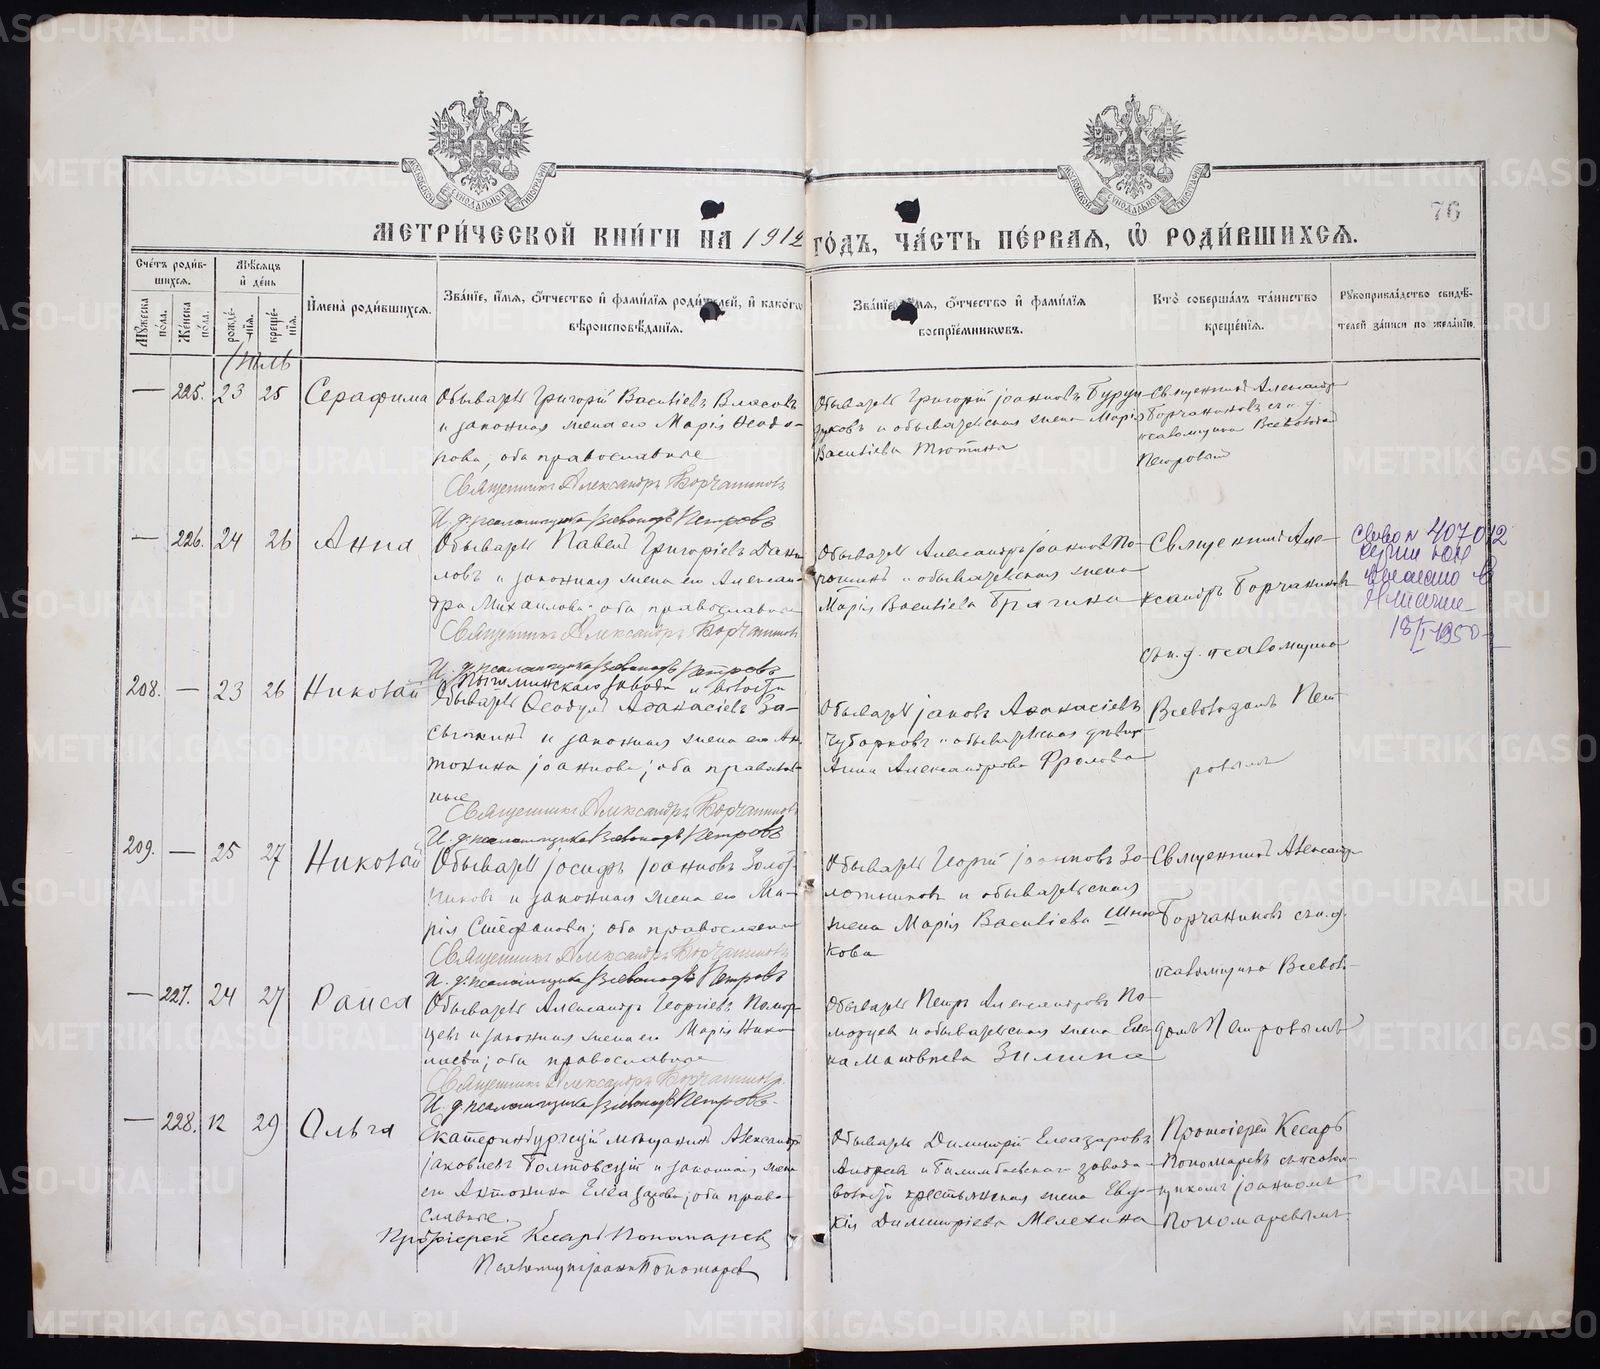 МЕТРИ́ЧЕСКОЙ КНИ́ГИ НА 1912 ГО́ДЪ, ЧА́СТЬ ПЕ́РВАЯ, Ѡ РОДИ́ВШИХСЯ.
76
Сче́тъ роди́в-
шихся.
Мѣ́сяцъ
и҆ де́нь
Мꙋ́жеска по́ла.
Же́нска по́ла.
рожде́-
нїя.
креще́-
нїя.
И҆мена̀ роди́вшихся.
Зва́нїе, и҆́мя, ѻ҆́тчество и҆ фами́лїя роди́телей, и҆ како́гѡ
вѣроисповѣ́данїя.
Зва́нїе, и҆́мя, ѻ҆́тчество и҆ фами́лїя
воспрїе́мникѡвъ.
Кто̀ соверша́лъ та́инство
креще́нїя.
Рꙋкоприкла́дство свидѣ́-
телей за́писи по жела́нїю.
Іюль
— 225. 23 25 Серафима
Обыватель Григорій Васильевъ Власовъ
и законная жена его Марія Ѳеодо-
рова; оба православные
Священникъ Александръ Борчаниновъ
И. д. псаломщика Всеволодъ Петровъ
Обыватель Григорій Іоанновъ
и обывательская жена Марія
Васильева Тютина
Священникъ Александръ
Борчаниновъ съ и. д.
псаломщика Всеволодомъ
Петровымъ
— 226. 24 26 Анна
Обыватель Павелъ Григоріевъ Дани-
ловъ и законная жена его Алексан-
дра Михаилова; оба православные
Священникъ Александръ Борчаниновъ
И. д. псаломщика Всеволодъ Петровъ
Обыватель Александръ Іоанновъ
и обывательская жена
Марія Васильева Брагина
Священникъ Але-
ксандръ Борчаниновъ
съ и. д. псаломщика
Всеволодомъ Пет-
ровымъ
407012
18/I 1950
208. — 23 26 Николай
Пышминскаго завода и волости
Обыватель Ѳеодулъ Аѳанасіевъ За-
и законная жена его Ан-
тонина Іоаннова; оба православ-
ные
Священникъ Александръ Борчаниновъ
И. д. псаломщика Всеволодъ Петровъ
Обыватель Іаковъ Аѳанасіевъ
Чубарковъ и обывательская дѣвица
Анна Александрова Фролова
209. — 25 27 Николай
Обыватель Іосифъ Іоанновъ Золот-
никовъ и законная жена его Ма-
рія Стефанова; оба православные
Священникъ Александръ Борчаниновъ
И. д. псаломщика Всеволодъ Петровъ
Обыватель Георгій Іоанновъ Зо-
и обывательская
жена Марія Васильева
кова
Священникъ Александръ
Борчаниновъ съ и. д.
псаломщика Всеволо-
домъ Петровымъ
— 227. 24 27 Раиса
Обыватель Александръ Георгіевъ Помор-
цевъ и законная жена его Марія Нико-
лаева; оба православные
Священникъ Александръ Борчаниновъ
И. д. псаломщика Всеволодъ Петровъ
Обыватель Петръ Александровъ По-
морцевъ и обывательская жена Еле-
на Матвѣева Зимина
— 228. 12 29 Ольга
Екатеринбургскій мѣщанинъ Александръ
Іаковлевъ Болтовскій и законная жена
его Антонина Елеазарова; оба право-
славные.
Протоіерей Кесарь Пономаревъ
Псаломщикъ Іоаннъ Пономаревъ
Обыватель Димитрій Елеазаровъ
Андреевъ и Билимбаевскаго завода
волости крестьянская жена Евдо-
кія Димитріева Мелехина
Протоіерей Кесарь
Пономаревъ съ псалом-
щикомъ Іоанномъ
Пономаревымъ
METRIKI.GASO-URAL.RU